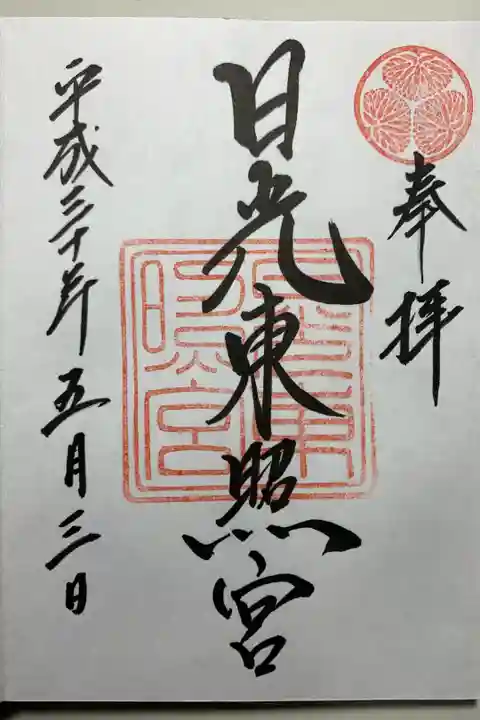 奉拝
日光東照宮
平成三十年五月三日